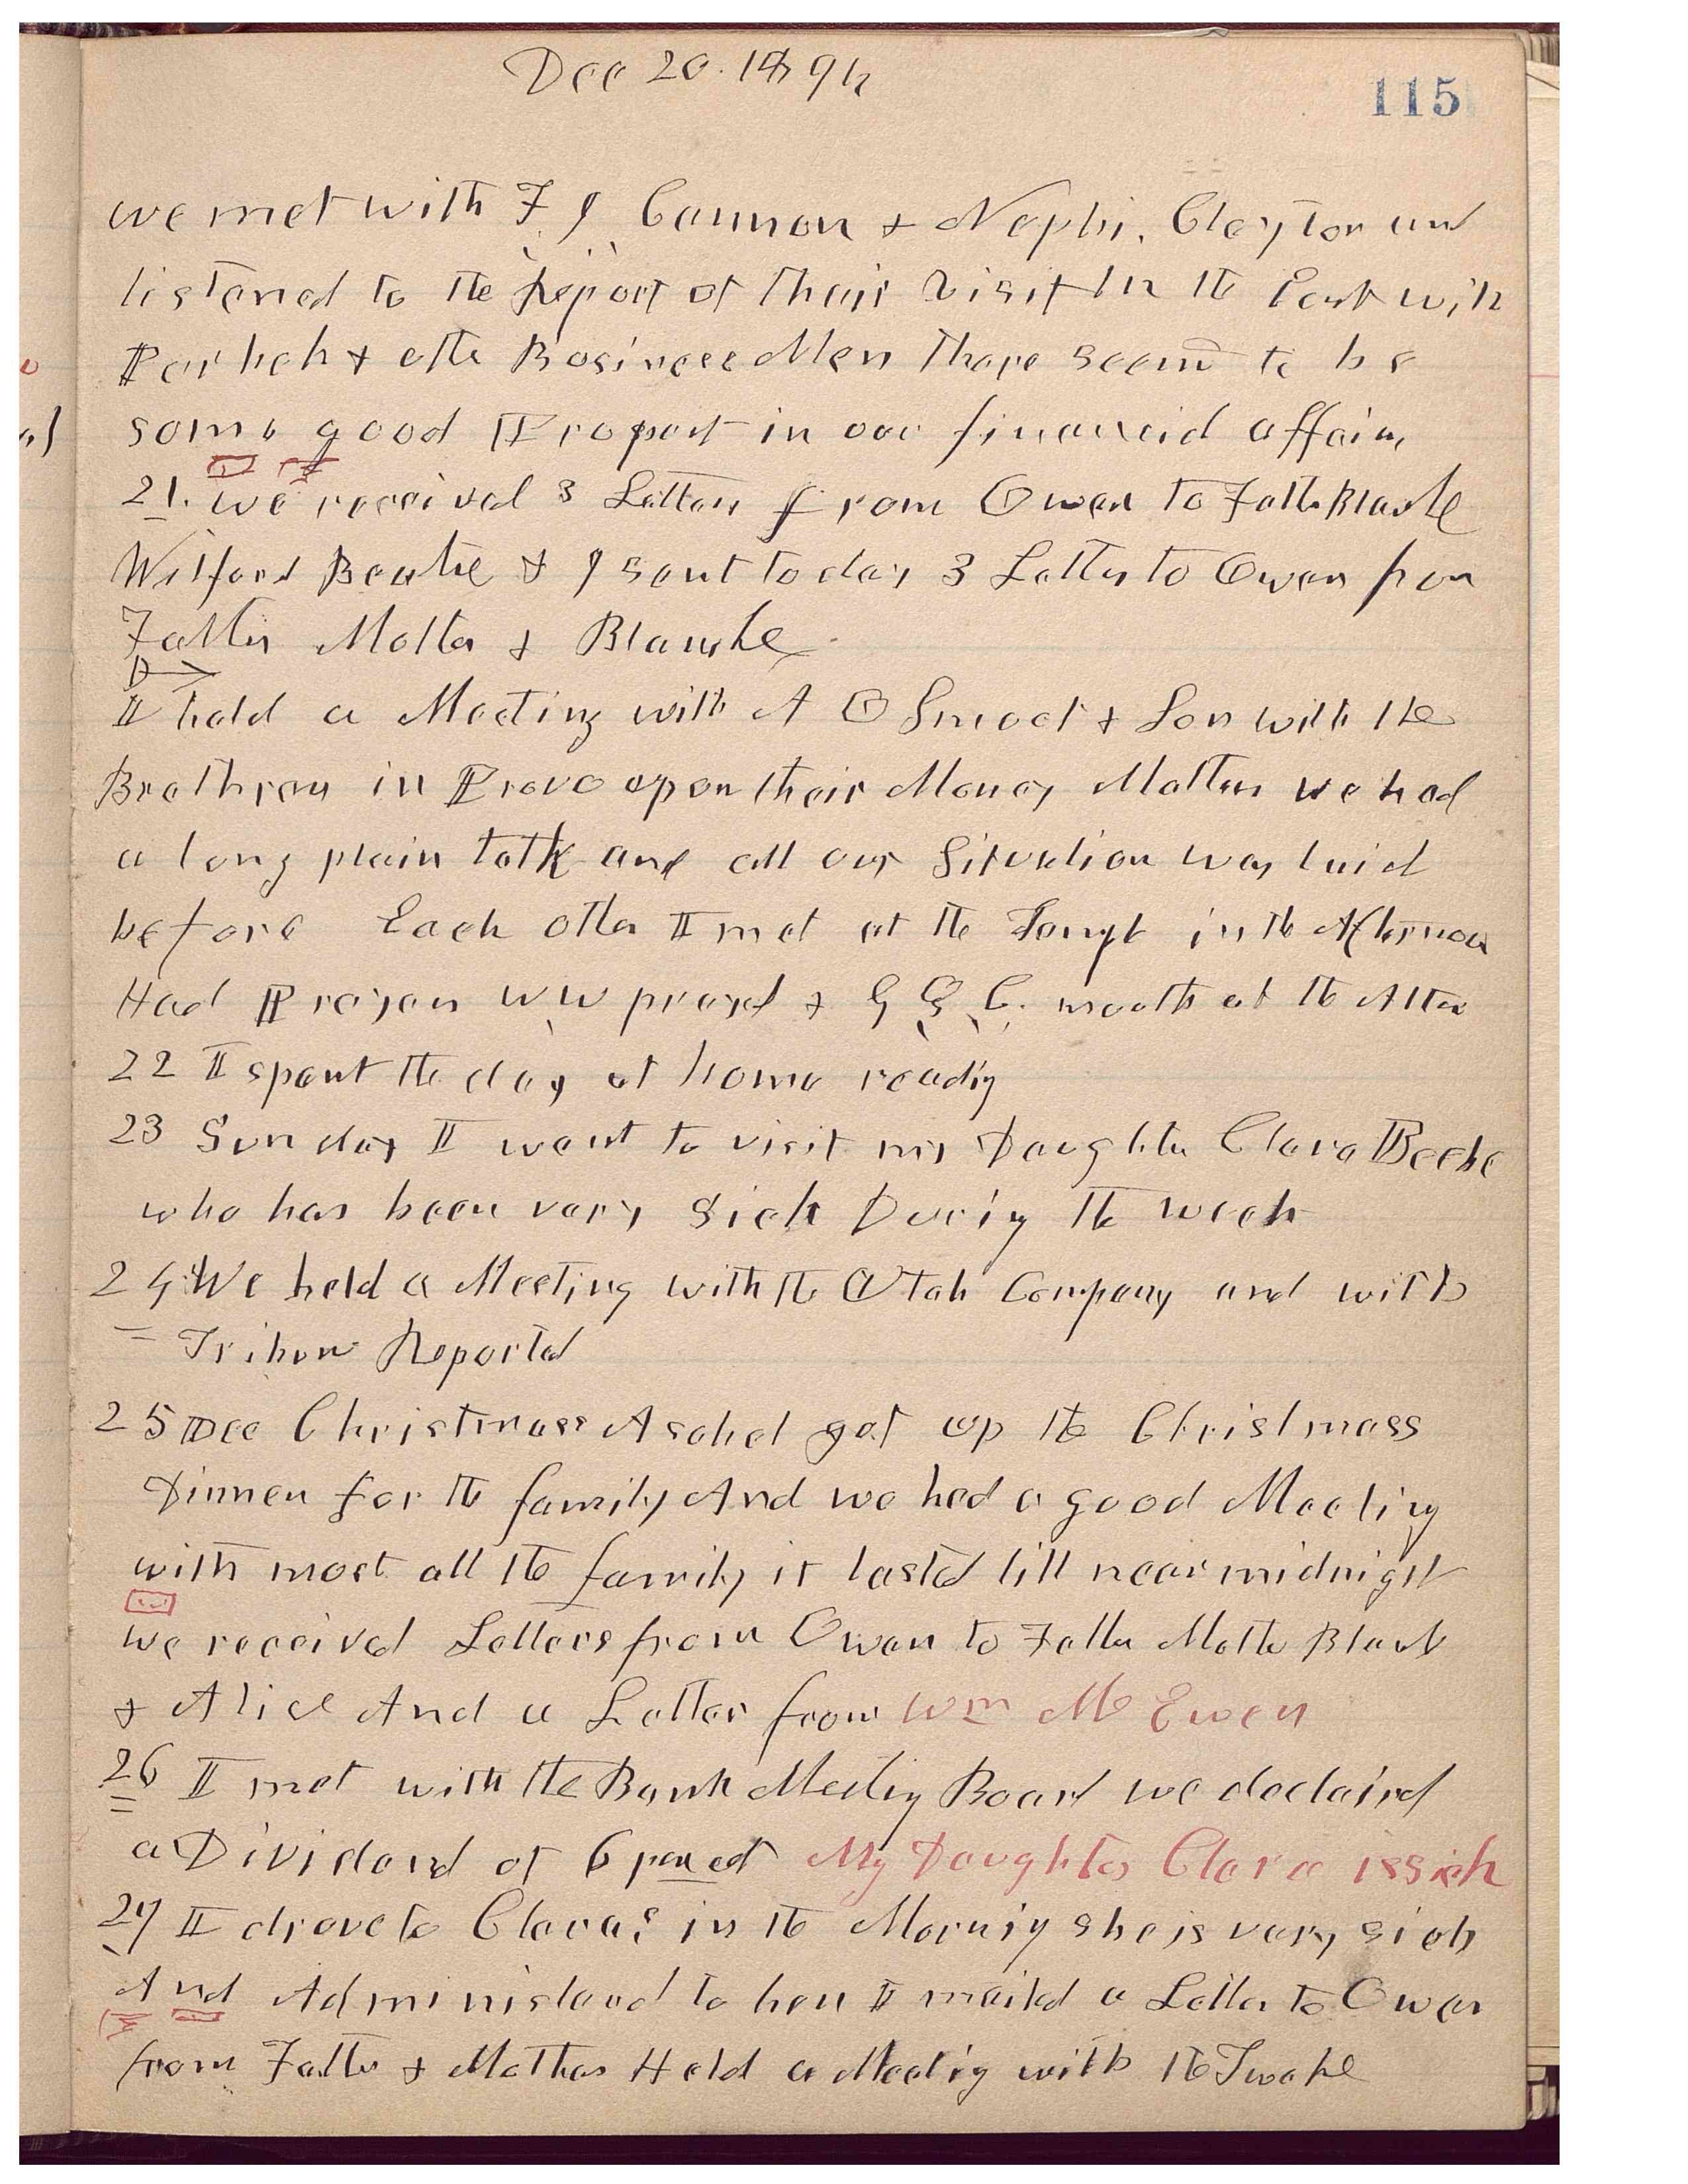 Dec 20. 1894
115
we met with F J Cannon & Nephi. Clayton and
listened to the Report of their visit in the East with
Parker & other Business Men There seemd to be
some good Prospect in our financial affairs
21. we received 3 Letters from Owen to Father Blanche
Wilford Beatie & I sent to day 3 Letters to Owen from
Father Mother & Blanche
I held a Meeting with A O Smoot & Son with the
Brethren in Provo upon their Money Matters we had
a long plain talk and all our Situation was laid
before Each other I met at the Temple in the Afternoon
Had Prayers W W prayed & G Q C. mouth at the Altar
22 I spent the day at home reading
23 Sunday I went to visit my Daughter Clara Beebe
who has been very sick During the week
24 We held a Meeting with the Utah Company and with
Tribune Reported
25 Dec Christmass Asahel got up the Christmass
Dinner for the family And we had a good Meeting
with most all the family it lasted till near midnight
we received Letters from Owen to Father Mother Blanch
& Alice And a Letter from Wm Mc Ewen
26 I met with the Bank Meeting Board we declaired
a Dividend of 6 per ct My Daughter Clara is sick
27 I drove to Claras in the Morning she is very sick
And Administered to her I mailed a Letter to Owen
from Father & Mother Held a Meeting with the Twelve